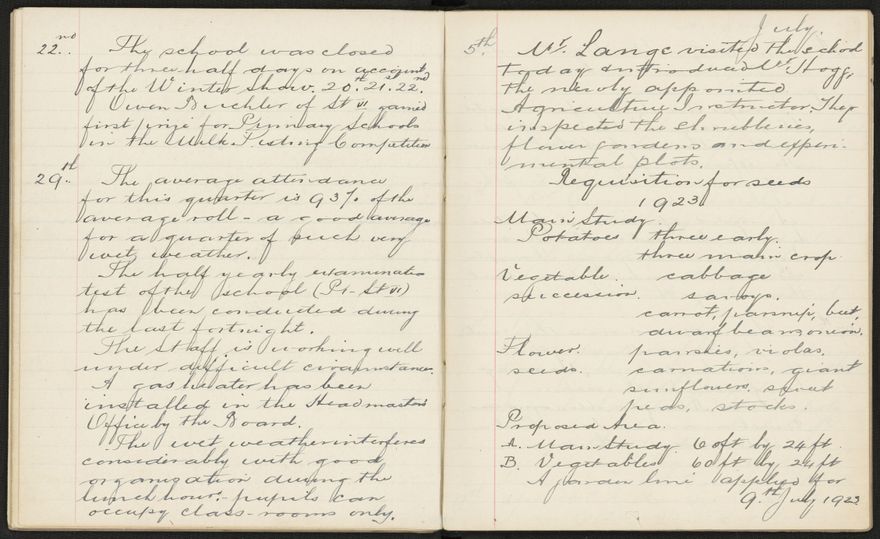 22.nd The school was closed
for three half days on account
of the Winter Show. 20th. 21st. 22nd.
Owen Buchler of St VI gained
first prize for Primary Schools
in the Milk Testing Competition
29.th The average attendance
for this quarter is 93% of the
average roll - a good average
for a quarter of such very
wet weather.
The half yearly examination
test of the school (P1 - St VI)
has been conducted during
the last fortnight.
The staff is working well
under difficult circumstances.
A gas heater has been
installed in the Headmaster's
Office by the Board.
The wet weather interferes
considerably with good
organisation during the
lunch hour:- pupils can
occupy class-rooms only.
July.
5th. Mr. Lange visited the school
today introduced Mr. Hogg,
the newly appointed
Agricultural Instructor. They
inspected the shrubberies,
flower gardens and experi-
mental plots.
Requisition for seeds
1923
Main Study.
Potatoes three early.
three main crop.
Vegetable. cabbage
succession. savoys.
carrot, parsnip, beet,
dwarf beans, onion.
Flower. pansies, violas,
seeds. carnations, giant
sunflowers, sweet
peas, stocks.
Proposed Area.
A. Main Study 60ft by 24ft.
B. Vegetables 60ft by 24ft
A garden line applied for
9.th July 1923